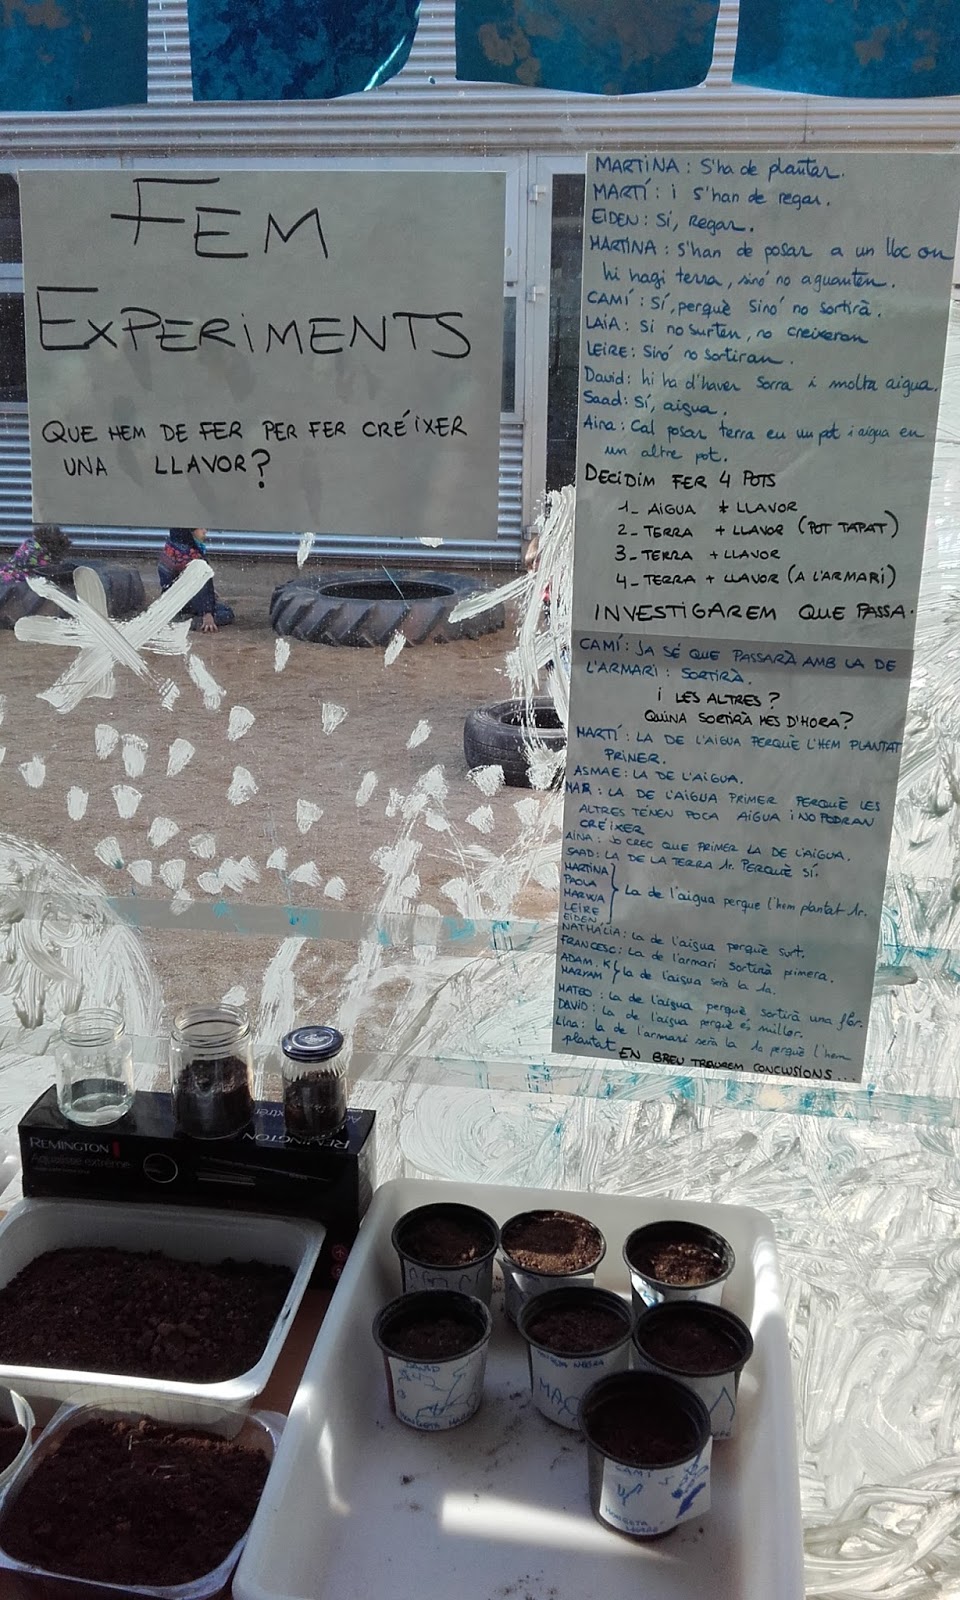 FEM
EXPERIMENTS
QUE HEM DE FER PER FER CRÉIXER
UNA LLAVOR?
MARTINA: S'ha de plantar.
MARTÍ: i s'han de regar.
EIDEN: Sí, Regar.
MARTINA: S'han de posar a un lloc on
hi hagi terra, sinó no aguanten.
CAMÍ: Sí, perquè sinó no sortirà.
LAIA: Si no surten, no creixeran
LEIRE: Sinó no sortiran.
David: hi ha d'haver sorra i molta aigua.
Saad: Sí, aigua.
Aina: Cal posar terra en un pot i aigua en
un altre pot.
DECIDIM FER 4 POTS
1_ AIGUA + LLAVOR
2_ TERRA + LLAVOR (POT TAPAT)
3_ TERRA + LLAVOR
4_ TERRA + LLAVOR (A L'ARMARI)
INVESTIGAREM QUE PASSA.
CAMÍ: JA SÉ QUE PASSARÀ AMB LA DE
L'ARMARI: SORTIRÀ.
I LES ALTRES?
QUINA SORTIRÀ MES D'HORA?
MARTÍ: LA DE L'AIGUA PERQUÈ L'HEM PLANTAT
PRIMER.
ASMAE: LA DE L'AIGUA.
MAR: LA DE L'AIGUA PRIMER PERQUÈ LES
ALTRES TENEN POCA AIGUA I NO PODRAN
CRÉIXER
AINA: JO CREC QUE PRIMER LA DE L'AIGUA.
SAAD: LA DE LA TERRA 1r. PERQUÈ SÍ.
MARTINA
PAOLA
MARWA
LEIRE
EIDEN
La de l'aigua perque l'hem plantat 1r.
NATHÀLIA: La de l'aigua perquè surt.
FRANCESC: La de l'armari sortirà primera.
ADAM.K
MARYAM
la de l'aigua serà la 1a.
MATEO: la de l'aigua perquè sortirà una flor.
DAVID: La de l'aigua perquè és millor.
Lina: la de l'armari serà la 1a perquè l'hem
plantat
EN BREU TRAUREM CONCLUSIONS...
REMINGTON
Aqualisse extrême
REMINGTON
DAVID
CAMÍ
MONGETA